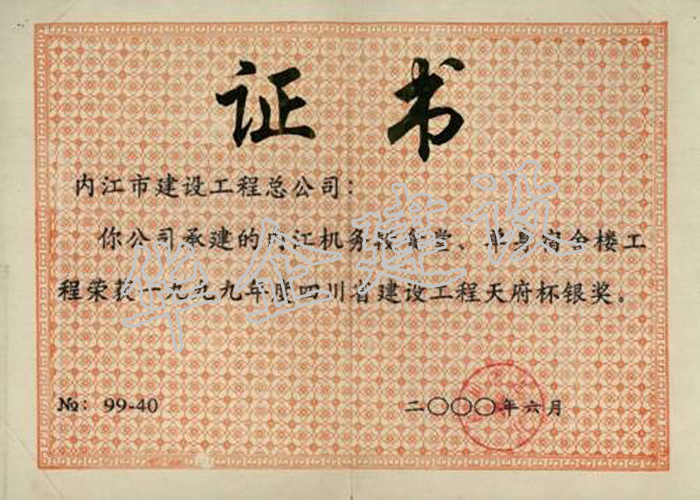 证书
内江市建设工程总公司：
你公司承建的内江机务段食堂、单身宿舍楼工
程荣获一九九九年度四川省建设工程天府杯银奖。
№：99-40
二〇〇〇年六月